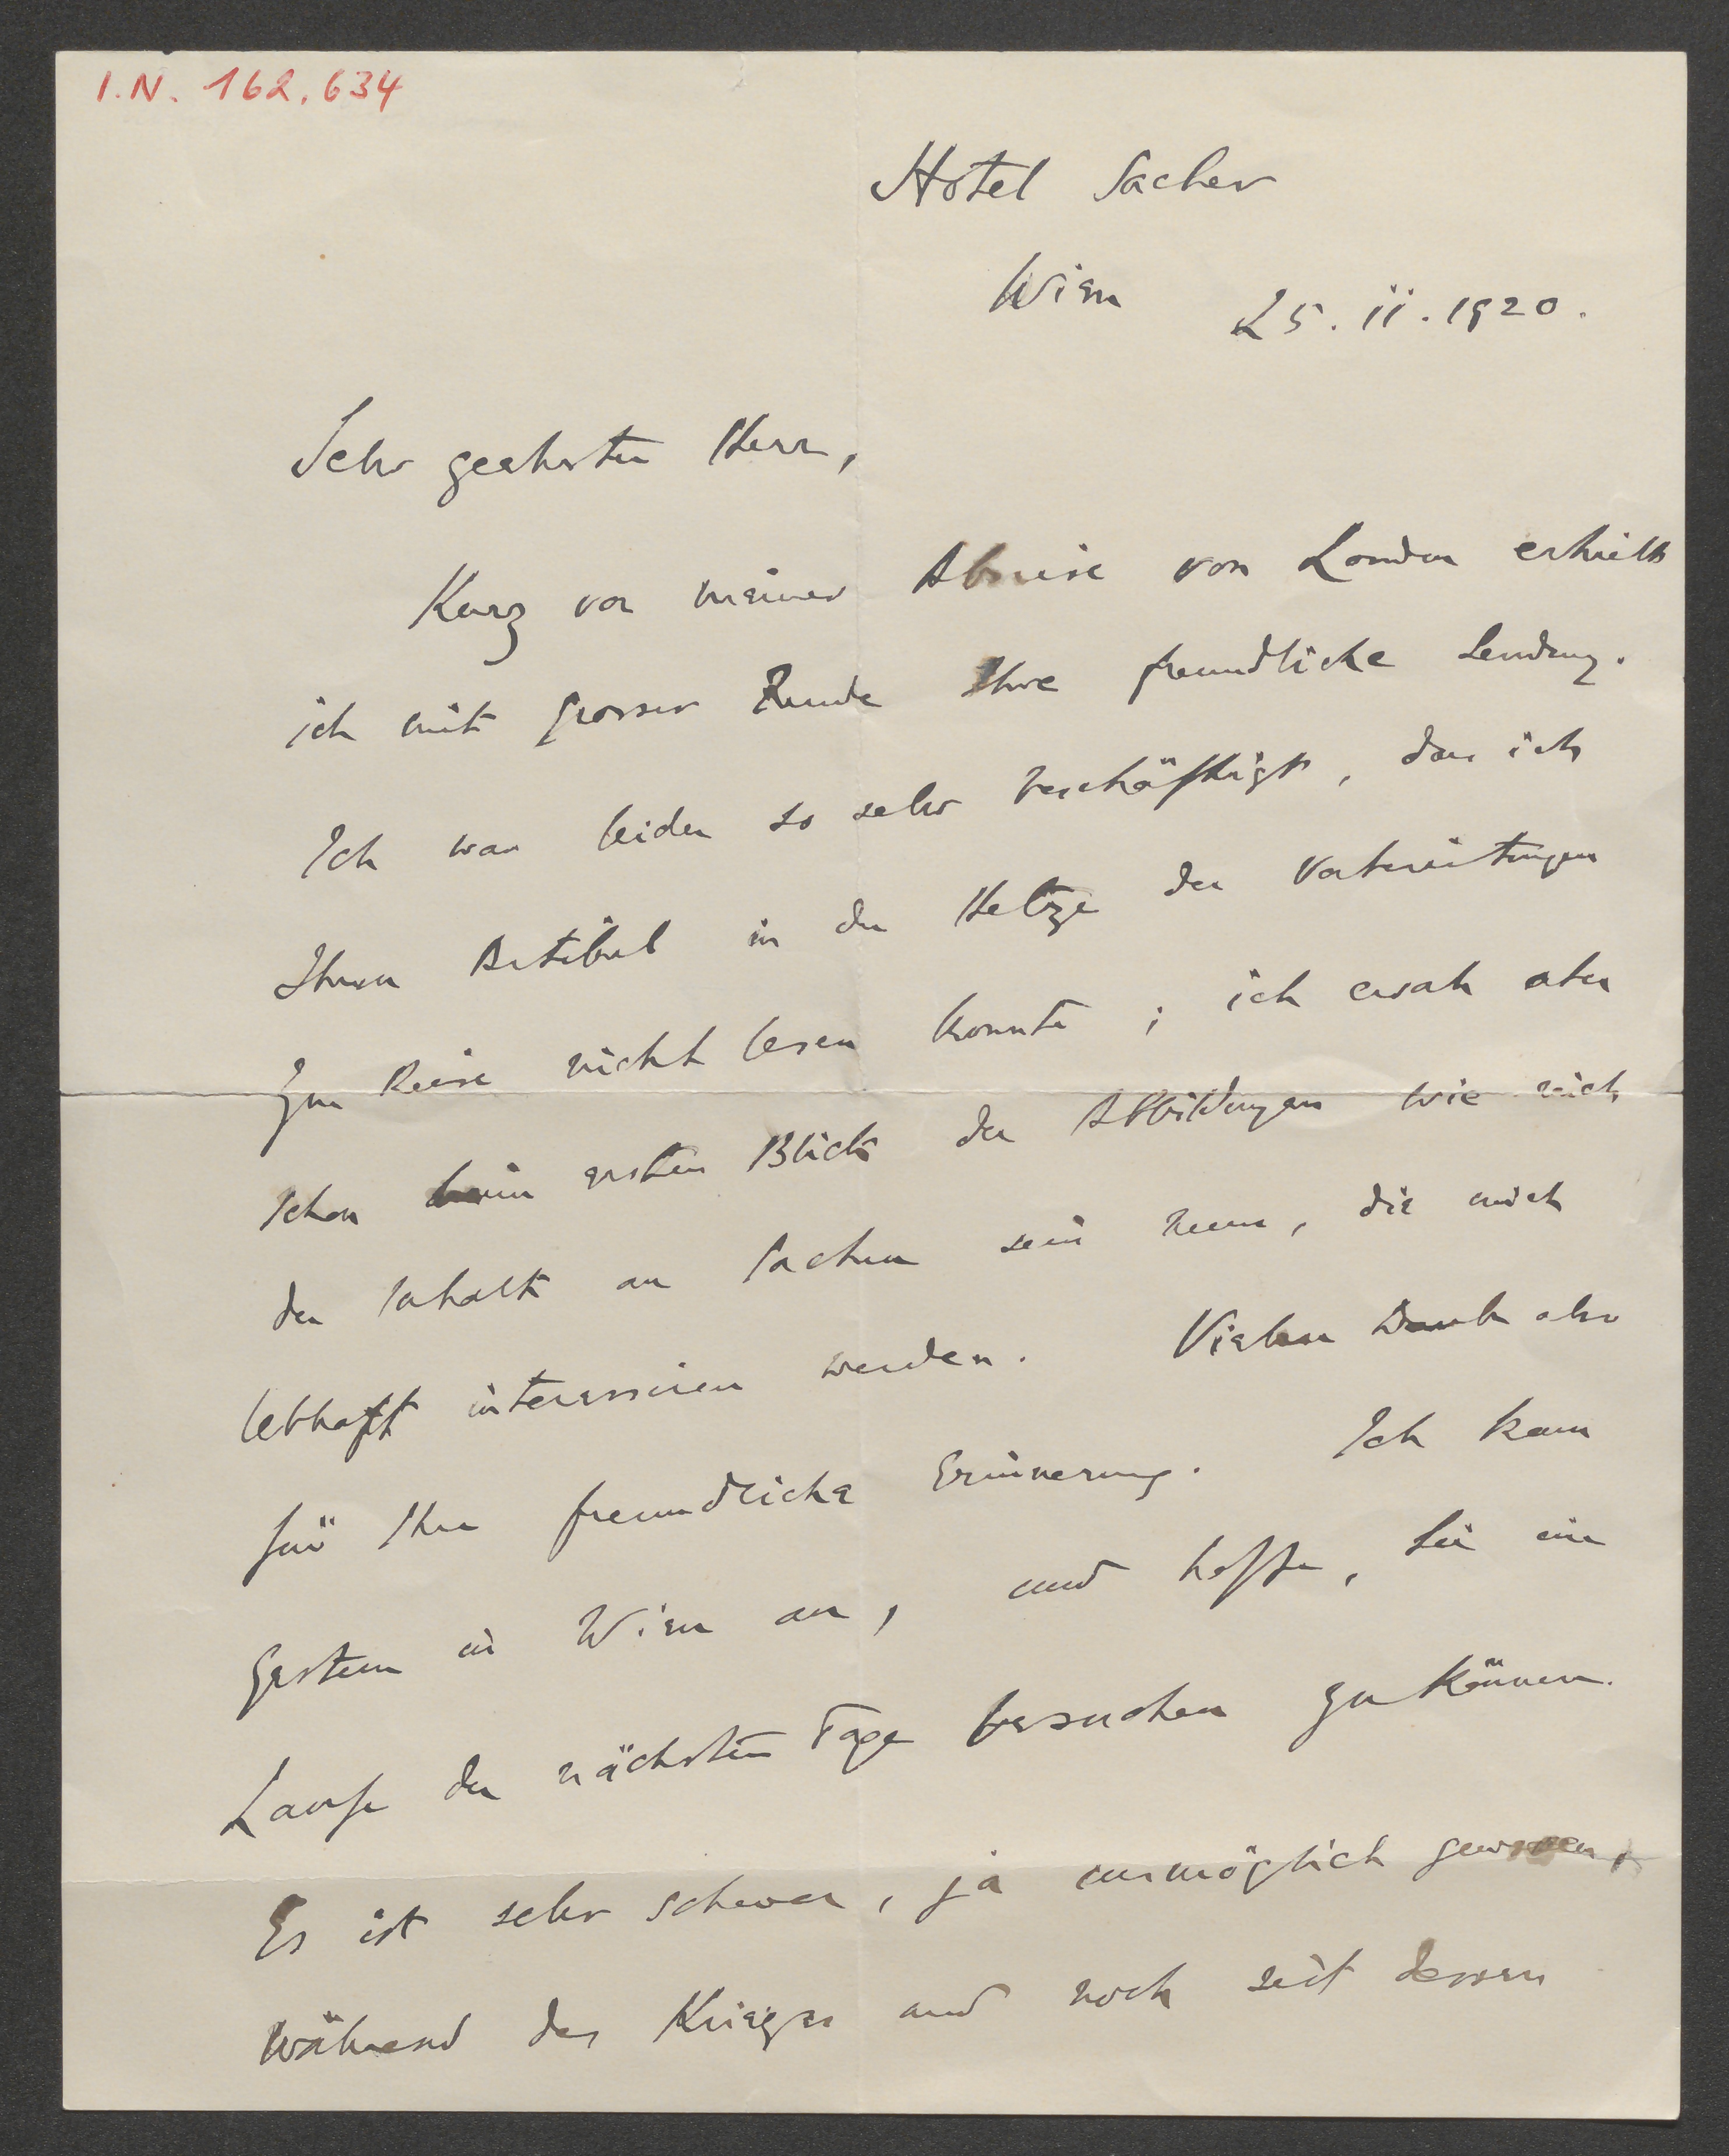 I.N. 162.634
Hotel Sacher
Wien 25.ii.1920.
Sehr geehrter Herr,
Kurz vor meiner Abreise von London erhielt
ich mit grosser Freude Ihre freundliche Sendung.
Ich war leider so sehr beschäftigt, das ich
Ihren Artikel in der Hetze der Vorbereitungen
zur Reise nicht lesen konnte; ich ersah aber
schon beim ersten Blick der Abbildungen wie reich
der Inhalt an Sachen sein muss, die mich
lebhaft interessiren werden. Vielen Dank also
für Ihre freundliche Erinnerung. Ich kam
gestern in Wien an, und hoffe, Sie im
Laufe der nächsten Tage besuchen zu können.
Es ist sehr schwer, ja unmöglich gewesen,
während des Krieges und noch seit dessen